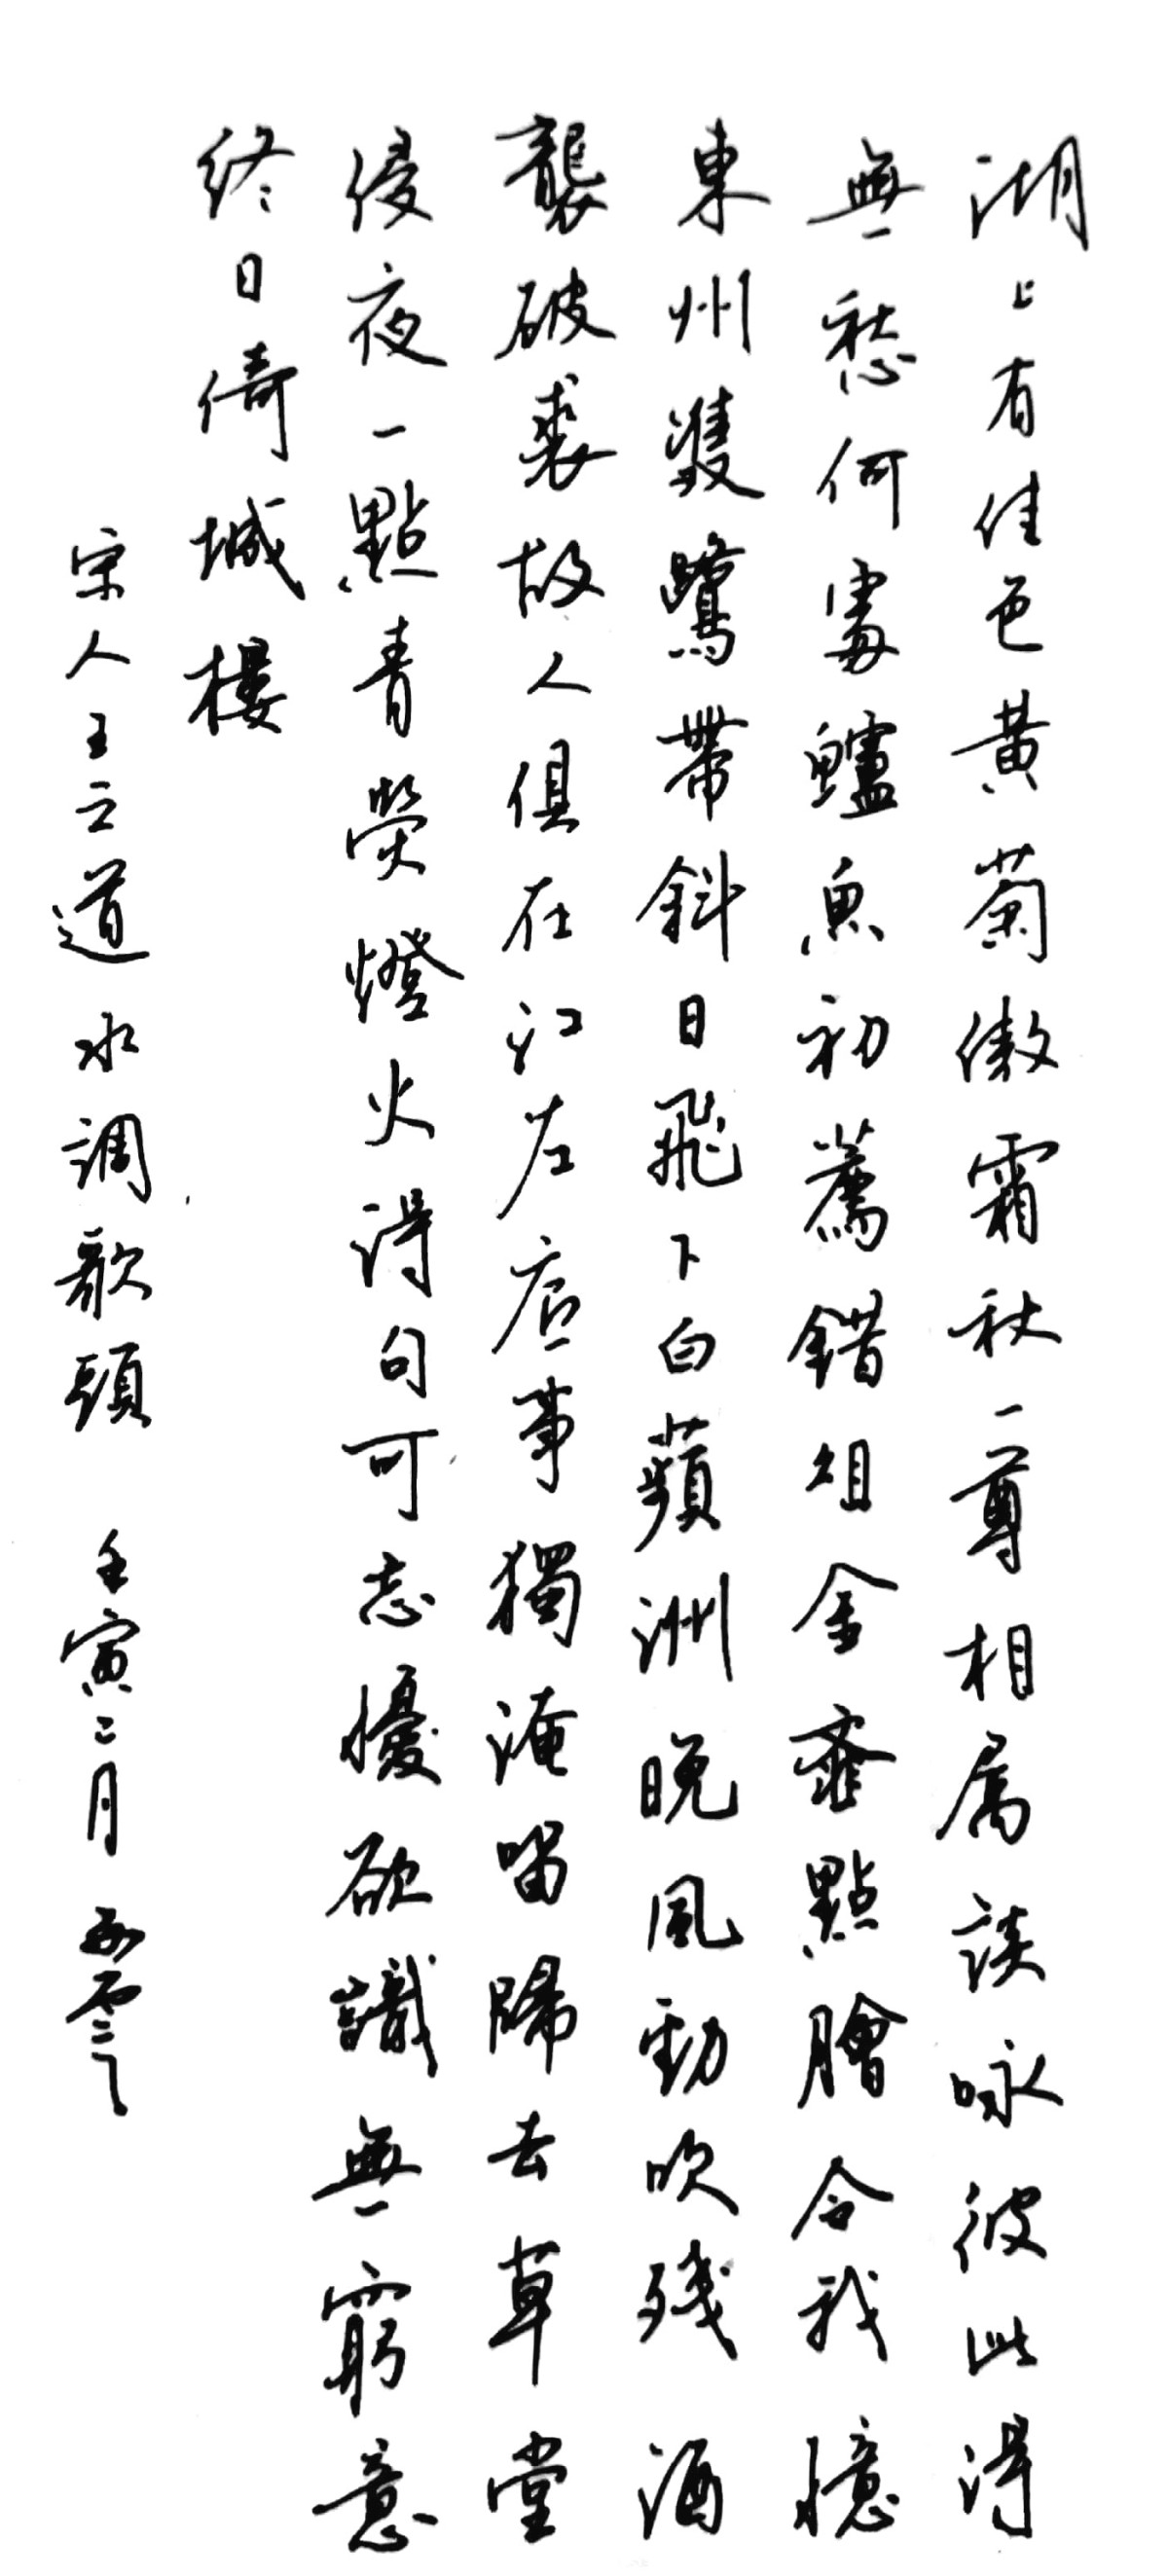 湖上有佳色黃菊傲霜秋一尊相属談咏彼此得
無愁何處鱸魚初薦錯俎金齏點膾令我憶
東州雙鷺帶斜日飛下白蘋洲晚風勁吹殘酒
襲破裘故人俱在江左底事獨淹留歸去草堂
侵夜一點青熒燈火得句可忘憂欲識無窮意
終日倚城樓
宋人王之道水調歌頭 壬寅二月